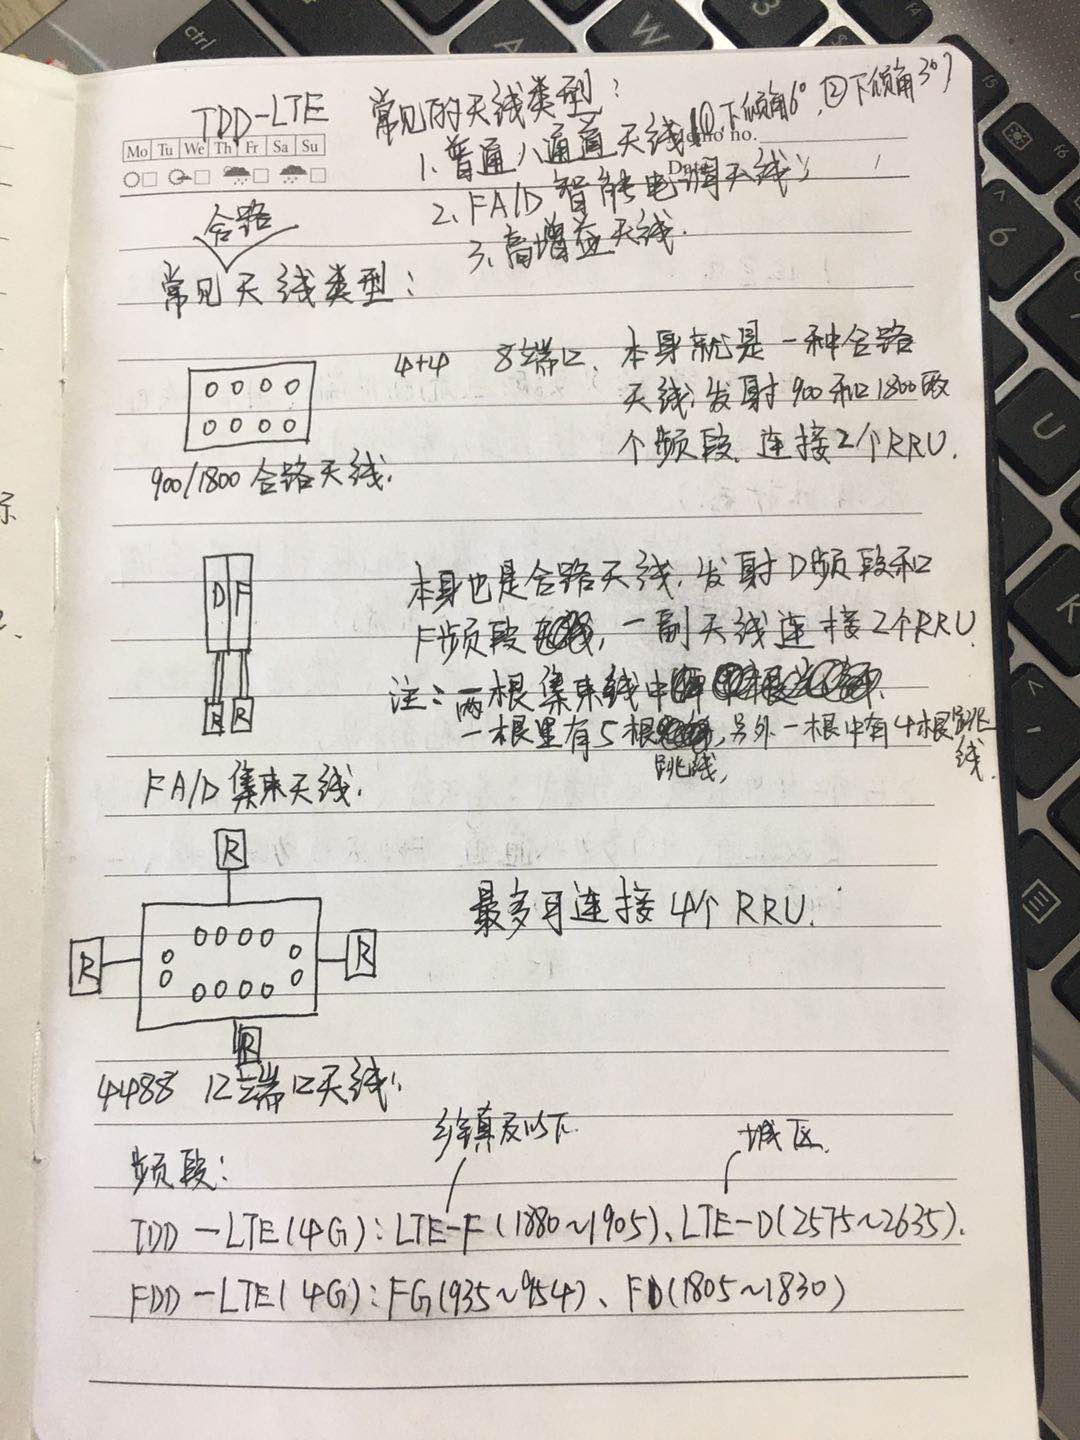 TDD-LTE 常见的天线类型:
1. 普通八通道天线(①下倾角6°,②下倾角3°)
2. FA/D智能电调天线;
3. 高增益天线.
Memo no.
Date / /
Mo Tu We Th Fr Sa Su
合路
常见天线类型:
4+4 8端口. 本身就是一种合路
天线,发射900和1800两
个频段. 连接2个RRU.
900/1800合路天线.
D F
本身也是合路天线,发射D频段和
F频段,一副天线连接2个RRU
注:两根集束线中
一根里有5根跳线,另外一根中有4根跳线.
R R
FA/D集束天线.
R
最多可连接4个RRU.
R R
R
4488 12端口天线;
乡镇及以下. 城区.
频段:
TDD-LTE(4G):LTE-F(1880~1905)、LTE-D(2575~2635).
FDD-LTE(4G):FG(935~954)、FD(1805~1830)
ctrl
A
W
3
f4
f5
f6
6
U
K
<